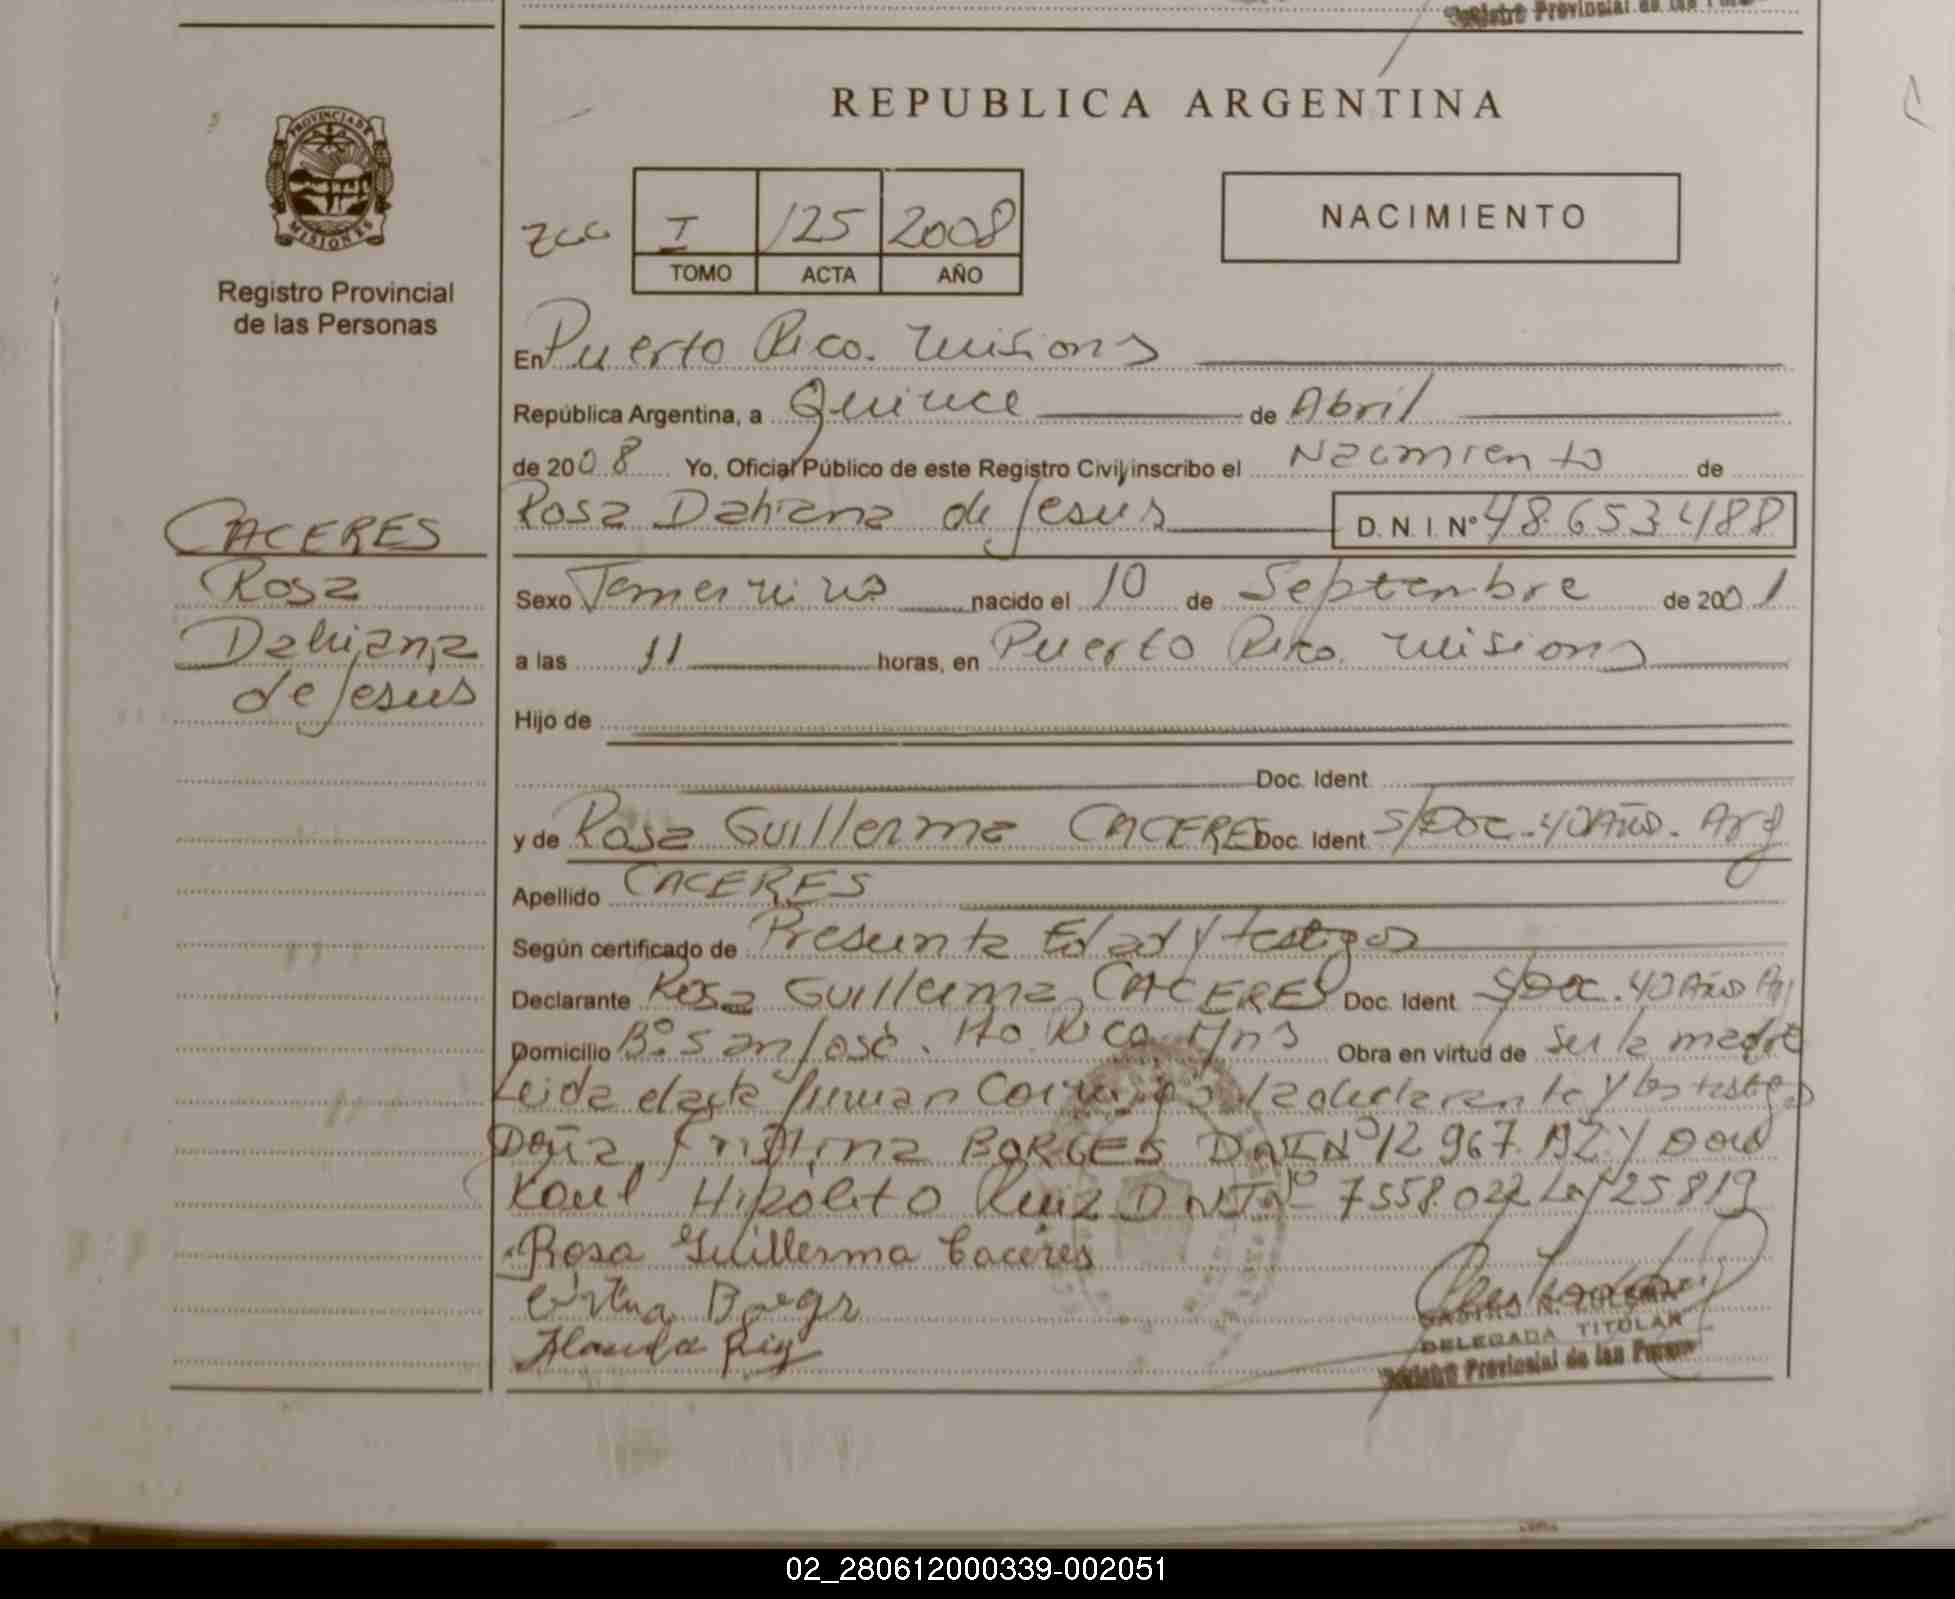 Registro Provincial de las
REPUBLICA ARGENTINA
PROVINCIA DE
MISIONES
Registro Provincial
de las Personas
I 125 2008
TOMO ACTA AÑO
NACIMIENTO
En Puerto Rico. Misiones
República Argentina, a Quince de Abril
de 2008 Yo, Oficial Público de este Registro Civil, inscribo el Nacimiento de
Rosa Dahiana de Jesus D. N. I. N° 48.653.488
CACERES
Rosa
Dahiana
de Jesus
Sexo Femenino nacido el 10 de Septiembre de 2001
a las 11 horas, en Puerto Rico. Misiones
Hijo de
Doc. Ident.
y de Rosa Guillerma CACERES Doc. Ident. S/Doc. 40 Años. Arg
Apellido CACERES
Según certificado de Presunta Edad y testigos
Declarante Rosa Guillerma CACERES Doc. Ident. S/Doc. 40 Años Arg
Domicilio B° San José. Pto. Rico. Mns Obra en virtud de ser la madre
Leida el acta firman Conmigo la declarante y los testigos
Doña Cristina BORGES DNI N° 12 967. y Don
Raul Hipólito Ruiz DNI N° 7558.022
Rosa Guillerma Caceres
DELEGADA TITULAR
Registro Provincial de las Personas
02_280612000339-002051